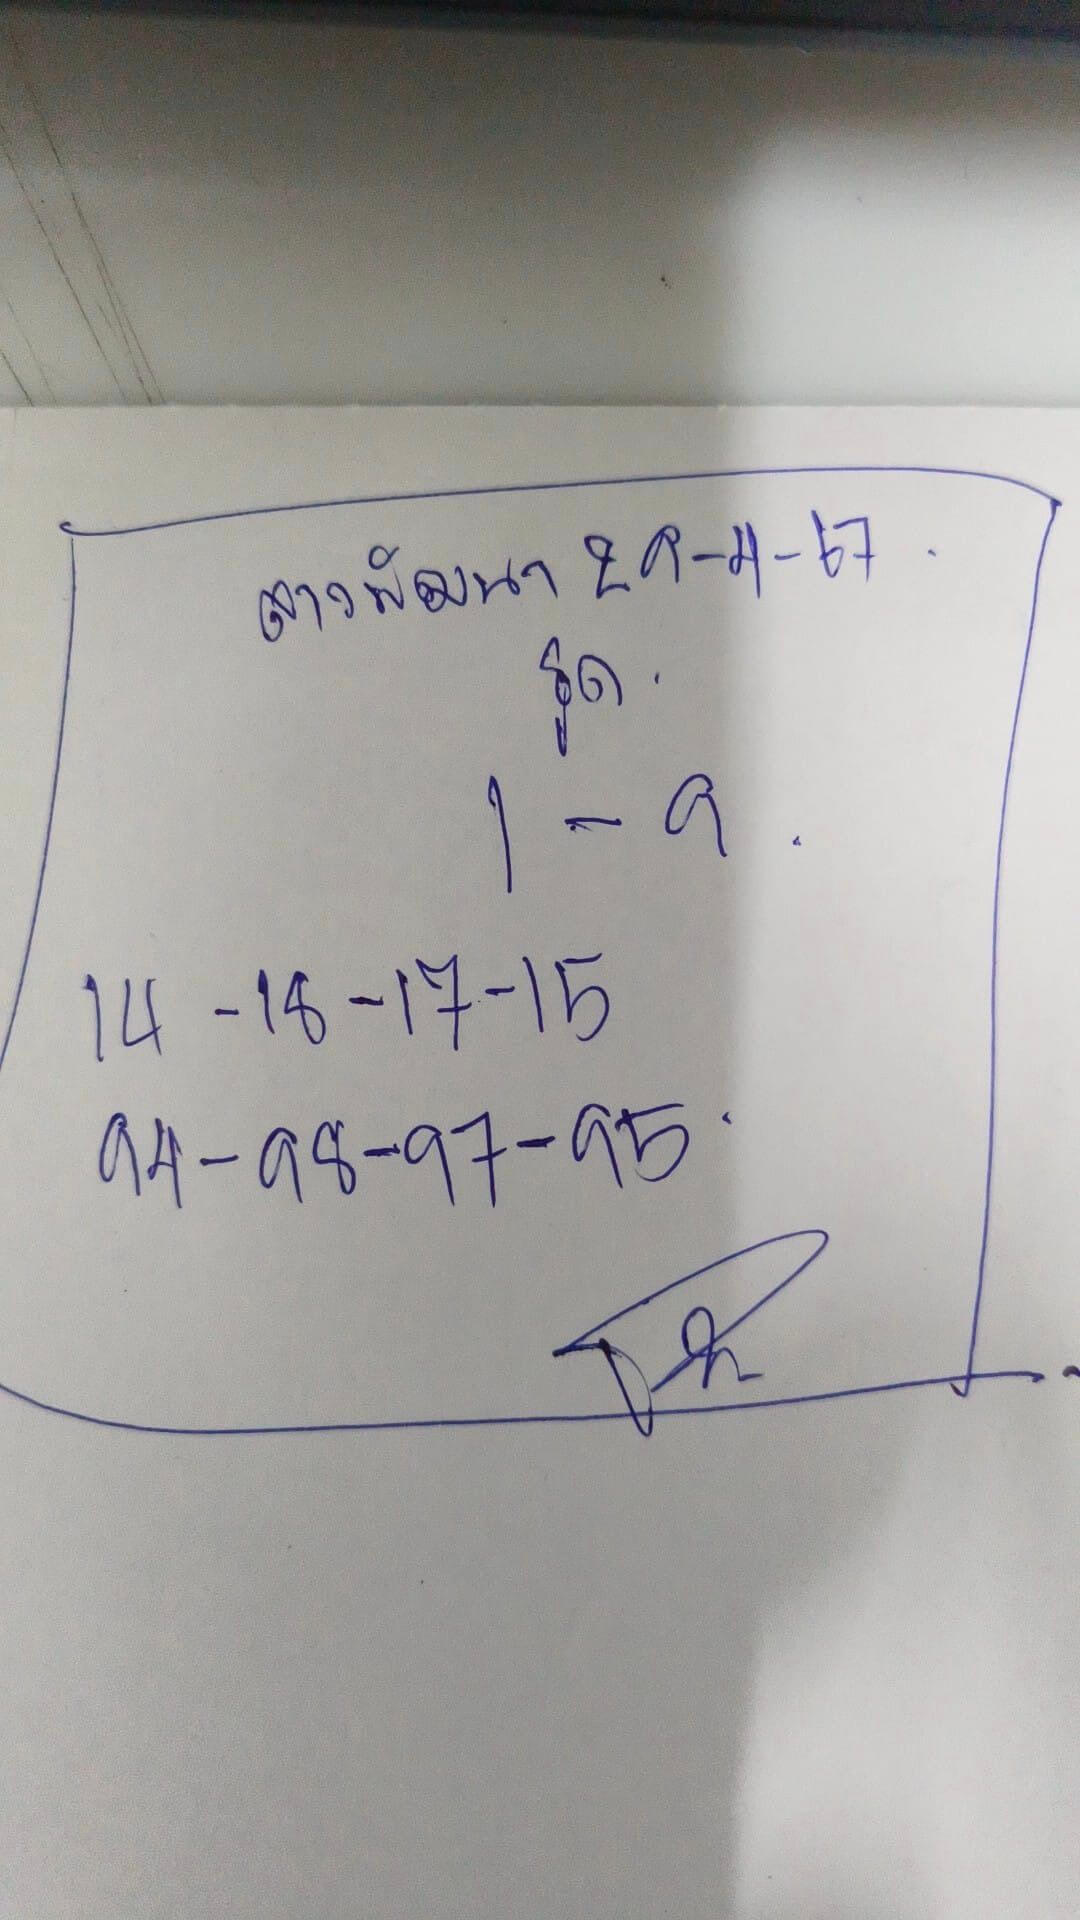 ลาวพัฒนา 29-4-67
รูด
1 - 9
14 -18-17-15
94-98-97-95